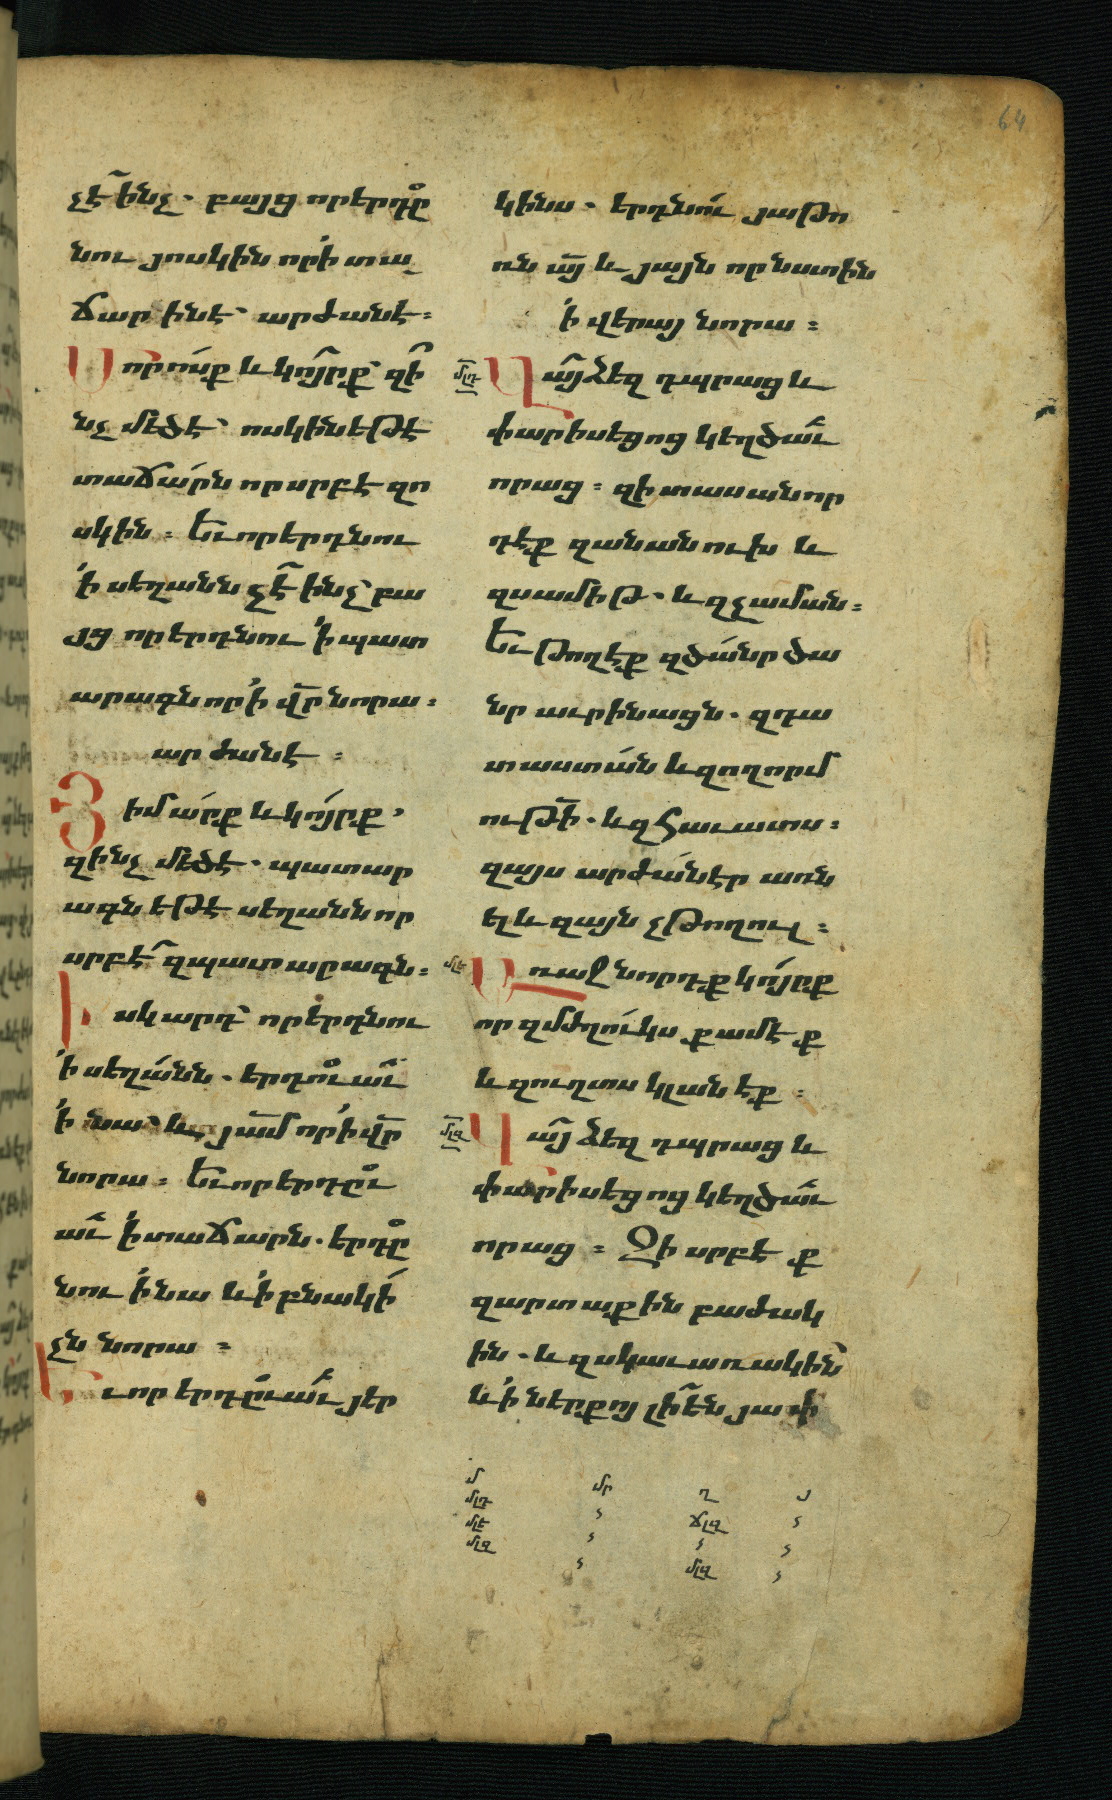 64
չէ ինչ. բայց որ երդը
նու յոսկին որ ի տա
ճար ինէ՝ արժանէ:
Մորոսք և կոյրք՝ զի
նչ մեծ է՝ ոսկին եթէ
տաճարն որ սրբէ զո
սկին: Եւ որ երդնու
ի սեղանն չէ ինչ՝ բա
յց որ երդնու ի պատ
արագն որ ի վր նորա:
արժանէ:
Յիմարք և կոյրք,
զինչ մեծ է. պատար
ագն եթէ սեղանն որ
սրբէ զպատարագն:
Իսկ արդ՝ որ երդնու
ի սեղանն. երդու աւ
ի նա՝ և յամ որ ի վր
նորա: Եւ որ երդըւ
աւ ի տաճարն. երդը
նու ի նա և ի բնակի
չն նորա:
Եւ որ երդըւաւ յեր
կինս. երդնու յաթո
ռն այ և յայն որ նստին
ի վերայ նորա:
մլդ Վայ ձեզ դպրաց և
փարիսեցոց կեղծաւ
որաց: զի տասանոր
դէք զանանուխ և
զսամիթ. և զչաման:
Եւ թողէք զծանր ծա
նր աւրինացն. զդա
տաստան և զողորմ
ութի. և զհաւատս:
զայս արժան էր առն
ել և զայն չթողուլ:
մլե Առաջնորդք կոյրք
որ զմժղուկս քամէք
և զուղտս կլանէք:
մլզ Վայ ձեզ դպրաց և
փարիսեցոց կեղծաւ
որաց: Զի սրբէք
զարտաքին բաժակ
ին. և զսկաւառակին
և ի ներքոյ լի են յափ
մ մր ղ յ
մլդ
մլե ճլզ
մլզ
մլզ